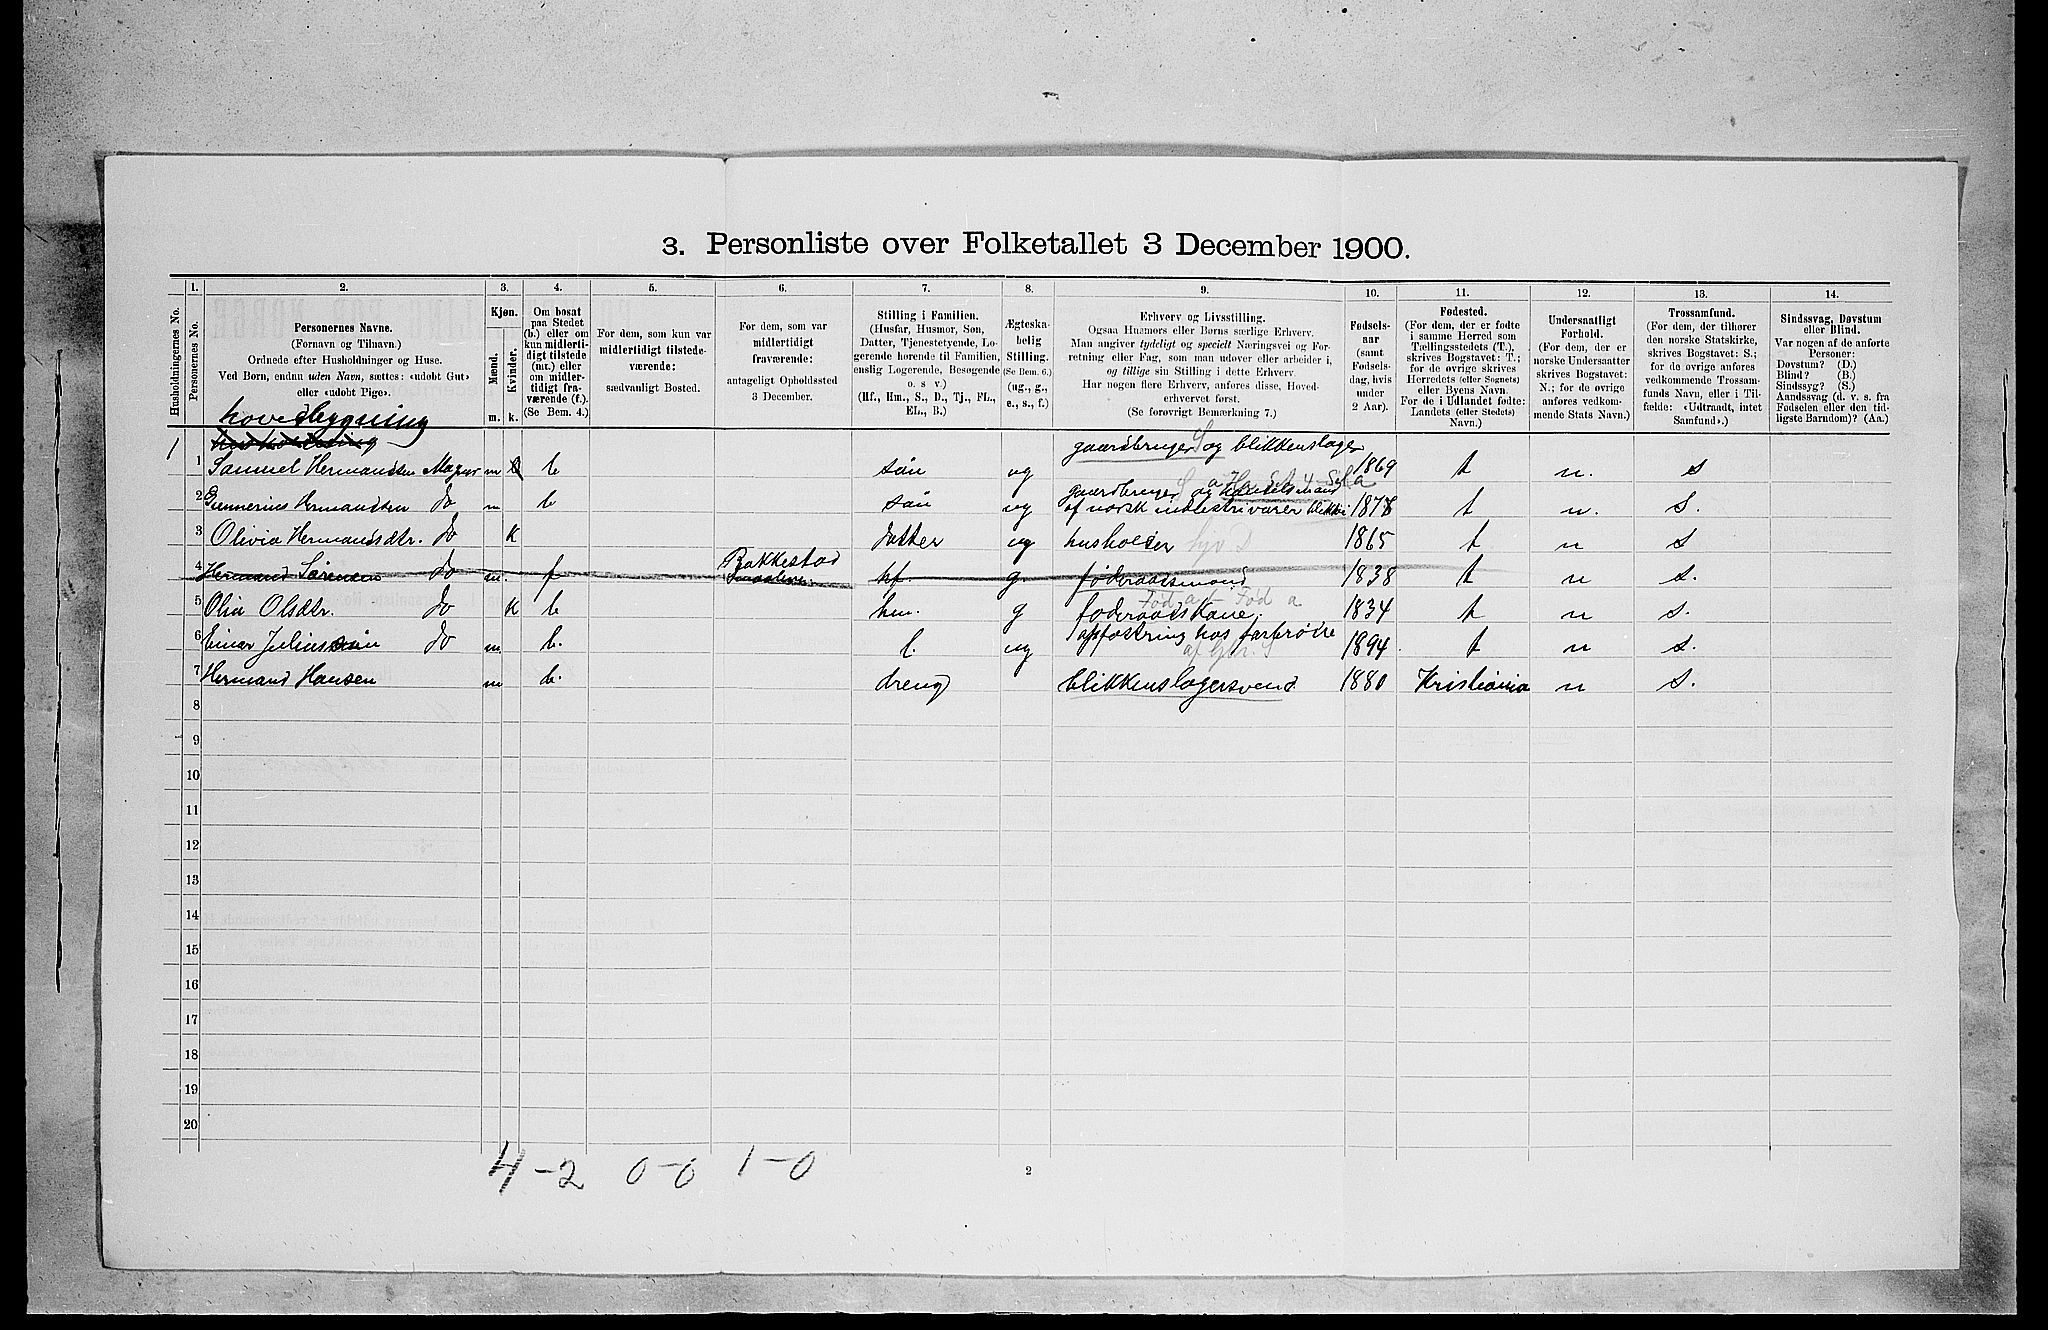 3. Personliste over Folketallet 3 December 1900.
1. 2. 3. 4. 5. 6. 7. 8. 9. 10. 11. 12. 13. 14.
Husholdningernes No.
Personernes No.
Personernes Navne.
(Fornavn og Tilnavn.)
Ordnede efter Husholdninger og Huse.
Ved Børn, endnu uden Navn, sættes: «udøbt Gut»
eller «udøbt Pige».
Kjøn.
Mænd.
Kvinder.
m. k.
Om bosat
paa Stedet
(b.) eller om
kun midlerti-
digt tilstede
(mt.) eller
om midler-
tidigt fra-
værende (f.).
(Se Bem. 4.)
For dem, som kun var
midlertidigt tilstede-
værende:
sædvanligt Bosted.
For dem, som var
midlertidigt
fraværende:
antageligt Opholdssted
3 December.
Stilling i Familien.
(Husfar, Husmor, Søn,
Datter, Tjenestetyende, Lo-
gerende hørende til Familien,
enslig Logerende, Besøgende
o. s. v.)
(Hf., Hm., S., D., Tj., FL.,
EL., B.)
Ægteska-
belig
Stilling.
(Se Bem. 6.)
(ug., g.,
e., s., f.)
Erhverv og Livsstilling.
Ogsaa Husmors eller Børns særlige Erhverv.
Man angiver tydeligt og specielt Næringsvei og For-
retning eller Fag, som man udøver eller arbeider i,
og tillige sin Stilling i dette Erhverv.
Har nogen flere Erhverv, anføres disse, Hoved-
erhvervet først.
(Se forøvrigt Bemærkning 7.)
Fødsels-
aar
(samt
Fødsels-
dag, hvis
under
2 Aar).
Fødested.
(For dem, der er fødte
i samme Herred som
Tællingsstedets (T.),
skrives Bogstavet: T.;
for de øvrige skrives
Herredets (eller Sognets)
eller Byens Navn.
For de i Udlandet fødte:
Landets (eller Stedets)
Navn.)
Undersaatligt
Forhold.
(For dem, der er
norske Undersaatter
skrives Bogstavet:
N.; for de øvrige
anføres vedkom-
mende Stats Navn.)
Trossamfund.
(For dem, der tilhører
den norske Statskirke,
skrives Bogstavet: S.;
for de øvrige anføres
vedkommende Trossam-
funds Navn, eller i Til-
fælde: «Udtraadt, intet
Samfund».)
Sindssvag, Døvstum
eller Blind.
Var nogen af de anførte
Personer:
Døvstum? (D.)
Blind? (B.)
Sindssyg? (S.)
Aandssvag (d. v. s. fra
Fødselen eller den tid-
ligste Barndom)? (Aa.)
hovedbygning
1
gaardbruger og blikkenslager
1 Samuel Hermandsen Magnor m b søn ug 1869 t n. s
gaardbruger og Handelsmand
2 Gunnerius Hermandsen do m b søn ug af norsk industrivarer 1878 t n. s.
3 Olivia Hermandsdtr. do k datter ug husholder 1865 t n s
Bakkestad
4 Hermand Sørensen do m. f hf. g. føderaadsmand 1838 t n s.
5 Olia Olsdtr. do k b hm. g føderaadskone. 1834 t n s.
opfostring hos farbrødre
6 Einar Juliussøn do m b. l. ug 1894. t n s.
7 Hermand Hansen m b. dreng blikkenslagersvend. 1880 Kristiania n s.
8
9
10
11
12
13
14
15
16
17
18
19
20
4-2 0-0 1-0
2